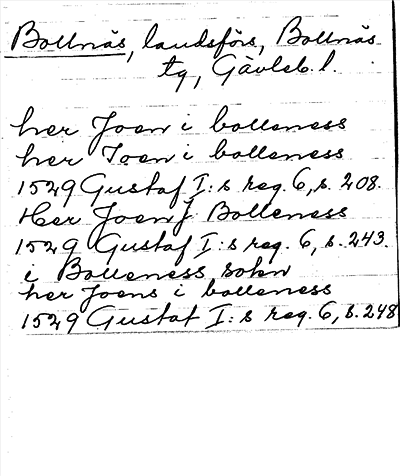 Bollnäs, landsförs, Bollnäs
tg, Gävleb. l.
her Joen i bolleness
her Joen i bolleness
1529 Gustaf I:s reg. 6, s. 208.
Her Joen j Bolleness
1529 Gustaf I:s reg. 6, s. 243.
i Bolleness sokn
her Joens i bolleness
1529 Gustaf I:s reg. 6, s. 248